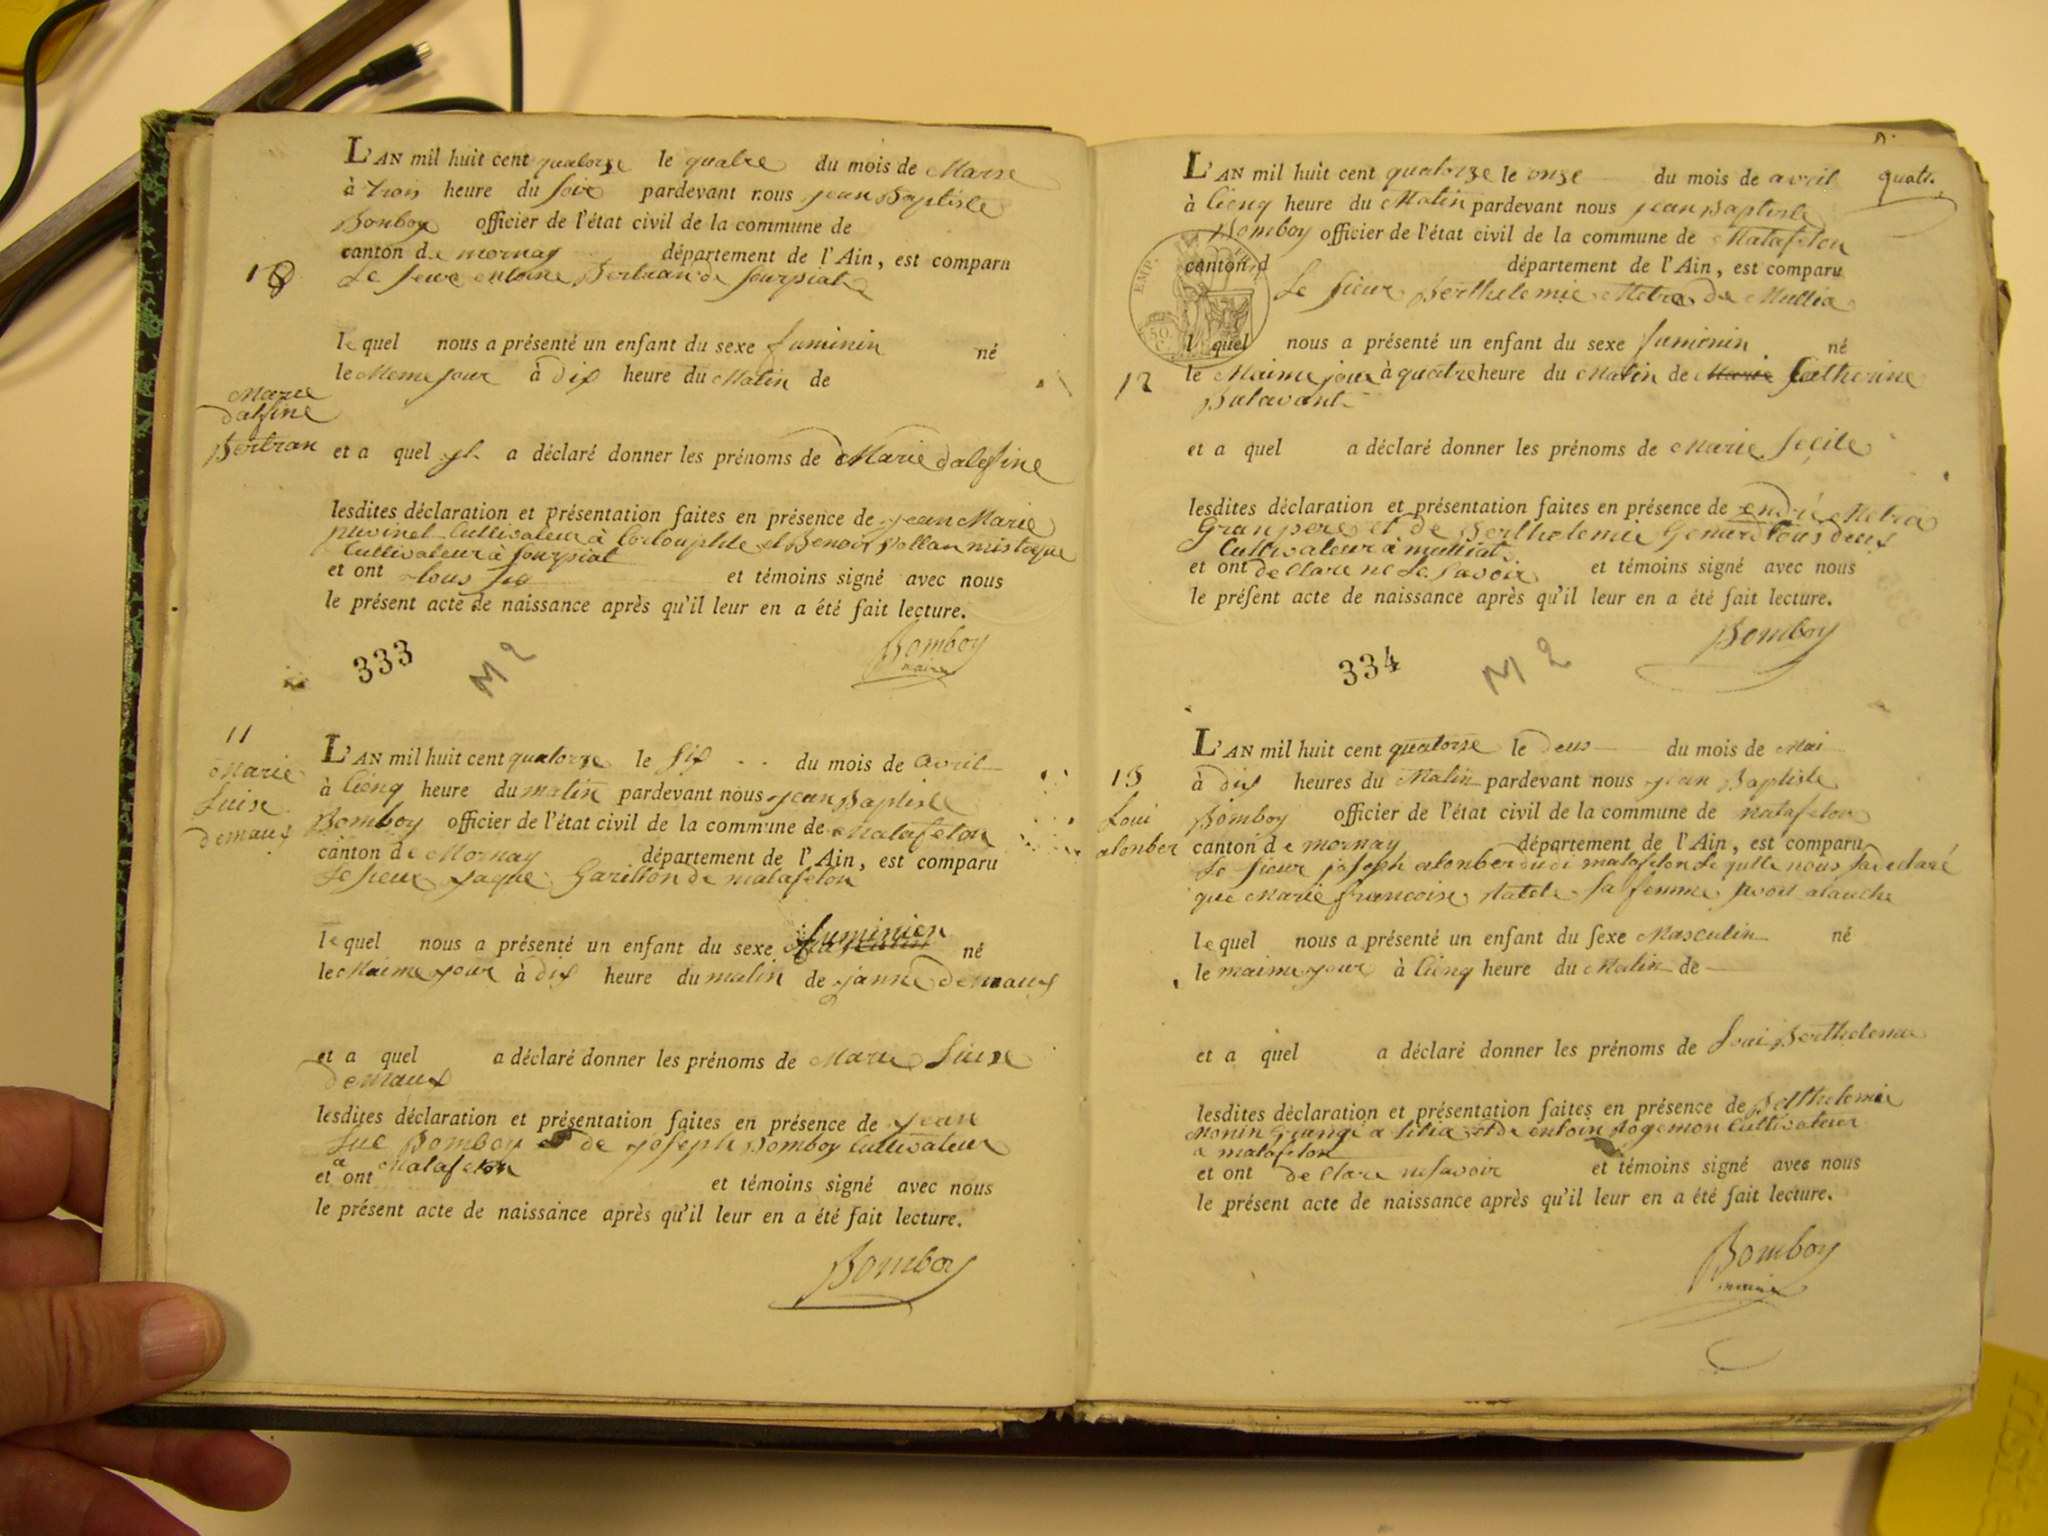 L'AN mil huit cent quatorze le quatre du mois de Marse
à trois heure du soir pardevant nous jean Baptiste
Bonboy officier de l'état civil de la commune de
canton de mornay département de l'Ain, est comparu
10
Le sieur entoine Bertran de
le quel nous a présenté un enfant du sexe fuminin né
le Meme jour à dix heure du Matin de
Marie
dalfine
Bertran
et a quel a déclaré donner les prénoms de Marie dalefine
lesdites déclaration et présentation faites en présence de jean Marie
Cultivateur à et Benoit
Cultivateur à
et ont tous et témoins signé avec nous
le présent acte de naissance après qu'il leur en a été fait lecture.
Bomboy
maire
333 M 2
11
Marie
Luise
demaux
L'AN mil huit cent quatorze le six du mois de avril
à Cienq heure du matin pardevant nous jean Baptiste
Bomboy officier de l'état civil de la commune de Matafelon
canton de Mornay département de l'Ain, est comparu
Le sieur jaque Garillon de matafelon
le quel nous a présenté un enfant du sexe fuminien né
le Maime jour à dix heure du matin de janne demaux
et a quel a déclaré donner les prénoms de Marie Luise
demaux
lesdites déclaration et présentation faites en présence de jean
Luc Bomboy et de joseph Bomboy Cultivateur
à Matafelon
et ont et témoins signé avec nous
le présent acte de naissance après qu'il leur en a été fait lecture.
Bomboy
quatr.
L'AN mil huit cent quatorze le onze du mois de avril
à Cienq heure du Matin pardevant nous jean Baptiste
Bomboy officier de l'état civil de la commune de Matafelon
canton d département de l'Ain, est comparu
EMP.
50
Le sieur Berthelemie Metra de Mullia
l quel nous a présenté un enfant du sexe fuminin né
12
le Maime jour à quatre heure du Matin de Marie Catherine
Butavant
et a quel a déclaré donner les prénoms de Marie Secile
lesdites déclaration et présentation faites en présence de endré Metra
Granpere et de Bertholemie Genard tous deux
Cultivateur à
et ont declare ne le savoir et témoins signé avec nous
le présent acte de naissance après qu'il leur en a été fait lecture.
Bomboy
334 M 2
13
Loui
alonber
L'AN mil huit cent quatorze le deus du mois de Mai
à dix heures du Matin pardevant nous jean Baptiste
Bomboy officier de l'état civil de la commune de matafelon
canton de mornay département de l'Ain, est comparu
Le sieur joseph alonber dudi matafelon Le quelle nous a declaré
que Marie francoise sa femme avoit
le quel nous a présenté un enfant du sexe Masculin né
le maime jour à Cienq heure du Matin de
et a quel a déclaré donner les prénoms de Loui Berthelemie
lesdites déclaration et présentation faites en présence de Belthelemie
Monin à et de entoin Cultivateur
à matafelon
et ont declare ne savoir et témoins signé avec nous
le présent acte de naissance après qu'il leur en a été fait lecture.
Bomboy
maire